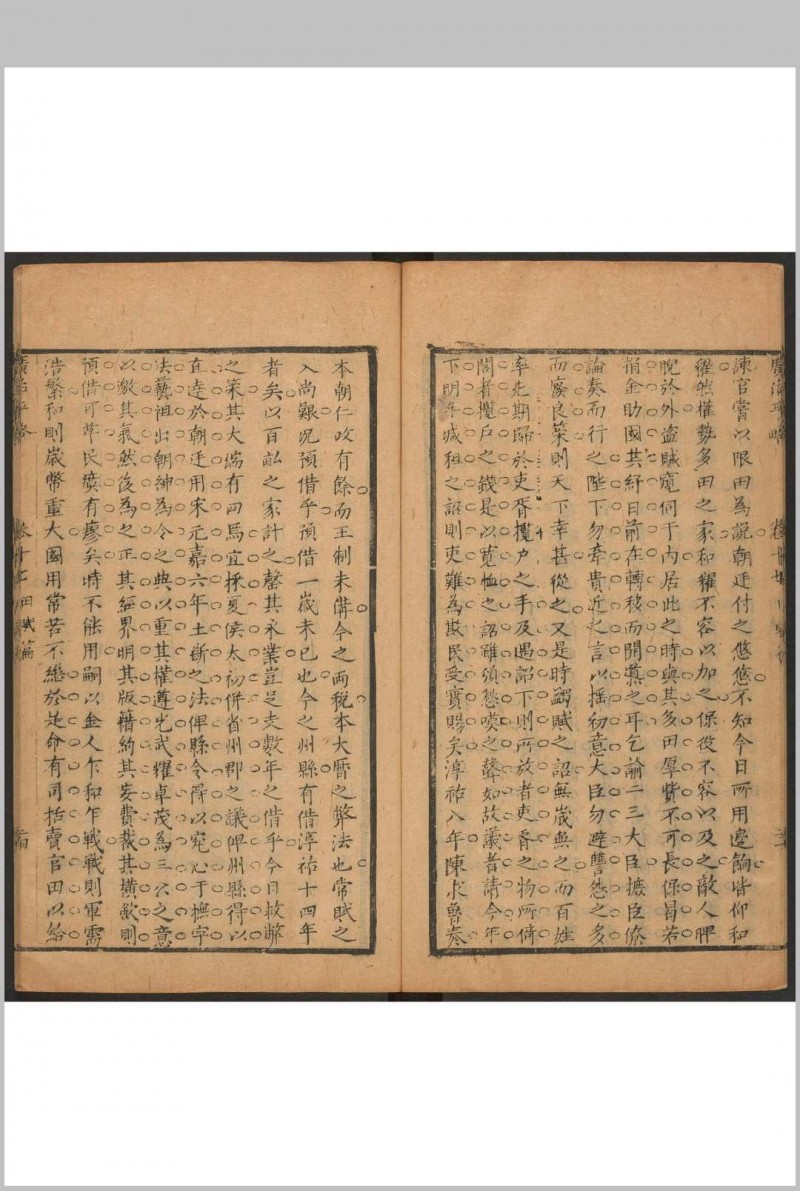 諫官嘗以限田為說朝廷付之悠悠不知今日所用邊餉皆仰和
糴然權勢多田之家和糴不容以加之保役不容以及之敵人睥
睨於外盜賊窺伺于內居此之時與其多田厚貲不可長保曷若
捐金助國共紓目前在轉移而開導之耳乞諭二三大臣摭臣僚
論奏而行之陛下勿牽貴近之言以搖初意大臣勿避讐怨之多
而寢良策則天下幸甚從之又是時蠲賦之詔無歲無之而百姓
率先期歸於吏胥攬戶之手及遇詔下則所放者吏胥之物所倚
閣者攬戶之錢是以寬恤之詔雖頒愁嘆之聲如故議者請今年
下明年減租之詔則吏難為欺民受實賜矣淳祐八年陳求魯奏
本朝仁政有餘而王制未備今之兩稅本大曆之弊法也常賦之
入尚艱况預借乎預借一歲未已也今之州縣有借淳祐十四年
者矣以百畝之家計之罄其永業豈足支數年之借乎今日救弊
之策其大端有四焉宜採夏侯太初併省州郡之議俾州縣得以
直達於朝廷用宋元嘉六年土斷之法俾縣令得以究心于撫字
法藝祖出朝紳為令之典以重其權遵光武擢卓茂為三公之意
以激其氣然後為之正其經界明其版籍約其妄費裁其橫歛則
預借可革民瘼有瘳矣時不能用嗣以金人乍和乍戰戰則軍需
浩繁和則歲幣重大國用常苦不繼於是命有司括賣官田以給
廣治平略
卷十七 田賦篇